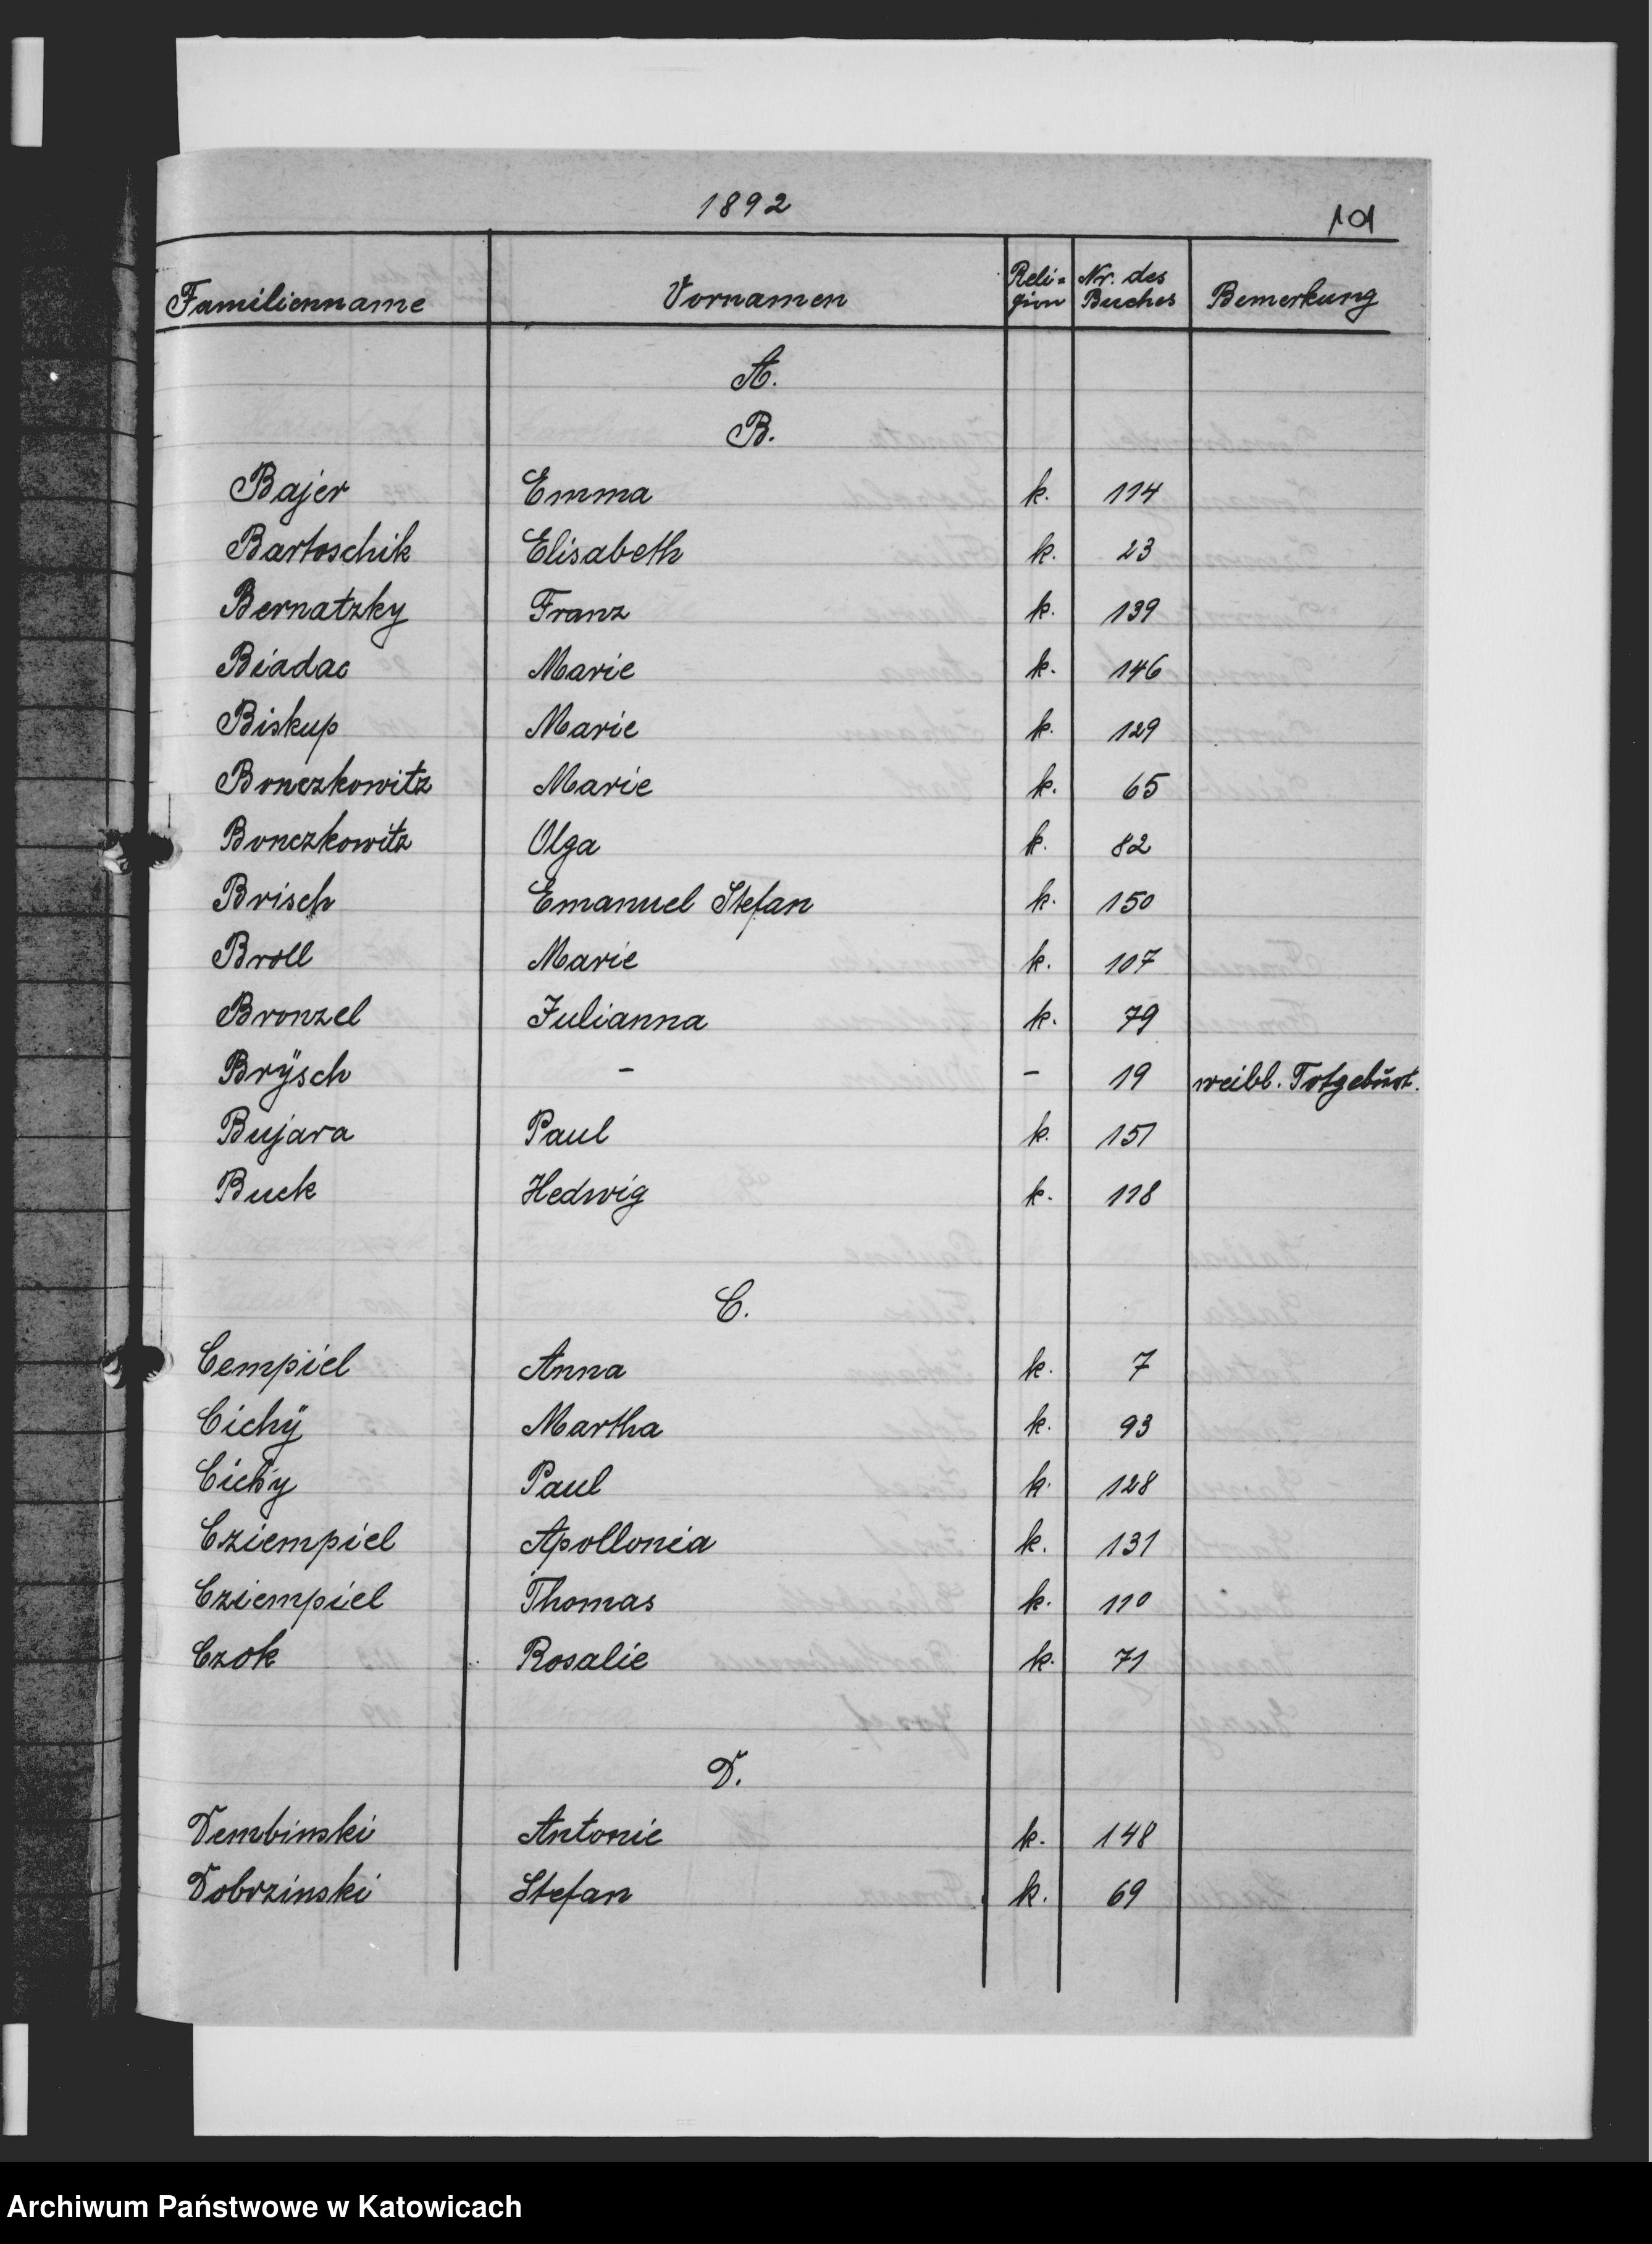 1892
101
Familienname Vornamen Religion Nr. des Buches Bemerkung
A.
B.
Bajer Emma k. 114
Bartoschik Elisabeth k. 23
Bernatzky Franz k. 139
Biadac Marie k. 146
Biskup Marie k. 129
Bonczkowitz Marie k. 65
Bonczkowitz Olga k. 82
Brisch Emanuel Stefan k. 150
Broll Marie k. 107
Bronzel Julianna k. 79
Brÿsch - - 19 weibl. Totgebŭrt.
Bujara Paul k. 151
Buck Hedwig k. 118
C.
Cempiel Anna k. 7
Cichÿ Martha k. 93
Cichy Paul k. 128
Cziempiel Apollonia k. 131
Cziempiel Thomas k. 110
Czok Rosalie k. 71
D.
Dembinski Antonie k. 148
Dobrzinski Stefan k. 69
Archiwum Państwowe w Katowicach